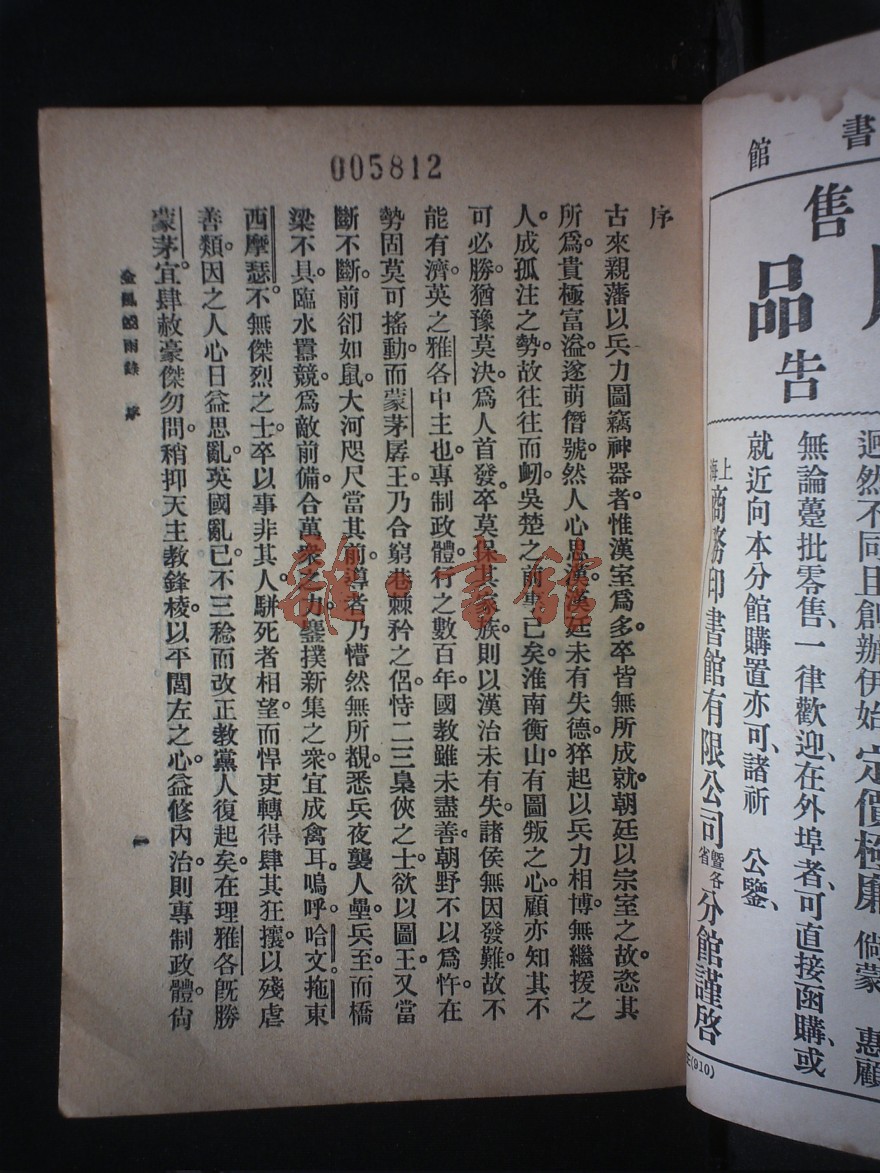 005812
序
古來親藩以兵力圖竊神器者。惟漢室爲多。卒皆無所成就。朝廷以宗室之故。恣其
所爲。貴極富溢。遂萌僭號。然人心思漢。漢廷未有失德。猝起以兵力相博。無繼援之
人。成孤注之勢。故往往而衂。吳楚之前事已矣。淮南衡山。有圖叛之心。顧亦知其不
可必勝。猶豫莫決。爲人首發。卒莫保其家族。則以漢治未有失。諸侯無因發難。故不
能有濟。英之雅各中主也。專制政體。行之數百年。國教雖未盡善。朝野不以爲忤。在
勢固莫可搖動。而蒙茅孱王。乃合窮巷棘矜之侶。恃二三梟俠之士。欲以圖王。又當
斷不斷。前卻如鼠。大河咫尺當其前。導者乃懵然無所覩。悉兵夜襲人壘。兵至而橋
梁不具。臨水囂競。爲敵前備。合萬衆之力。鏖撲新集之衆。宜成禽耳。嗚呼。哈文拖東
西摩瑟。不無傑烈之士。卒以事非其人。駢死者相望。而悍吏轉得肆其狂攘。以殘虐
善類。因之人心日益思亂。英國亂已。不三稔而改正教。黨人復起矣。在理雅各旣勝
蒙茅。宜肆赦豪傑勿問。稍抑天主教鋒棱。以平閭左之心。益修內治。則專制政體。尙
金風鐵雨錄 序
一
書館
售品
告
迥然不同且創辦伊始定價極廉倘蒙 惠顧
無論躉批零售、一律歡迎、在外埠者、可直接函購、或
就近向本分館購置亦可、諸祈 公鑒、
上海商務印書館有限公司暨各省分館謹啓
(910)